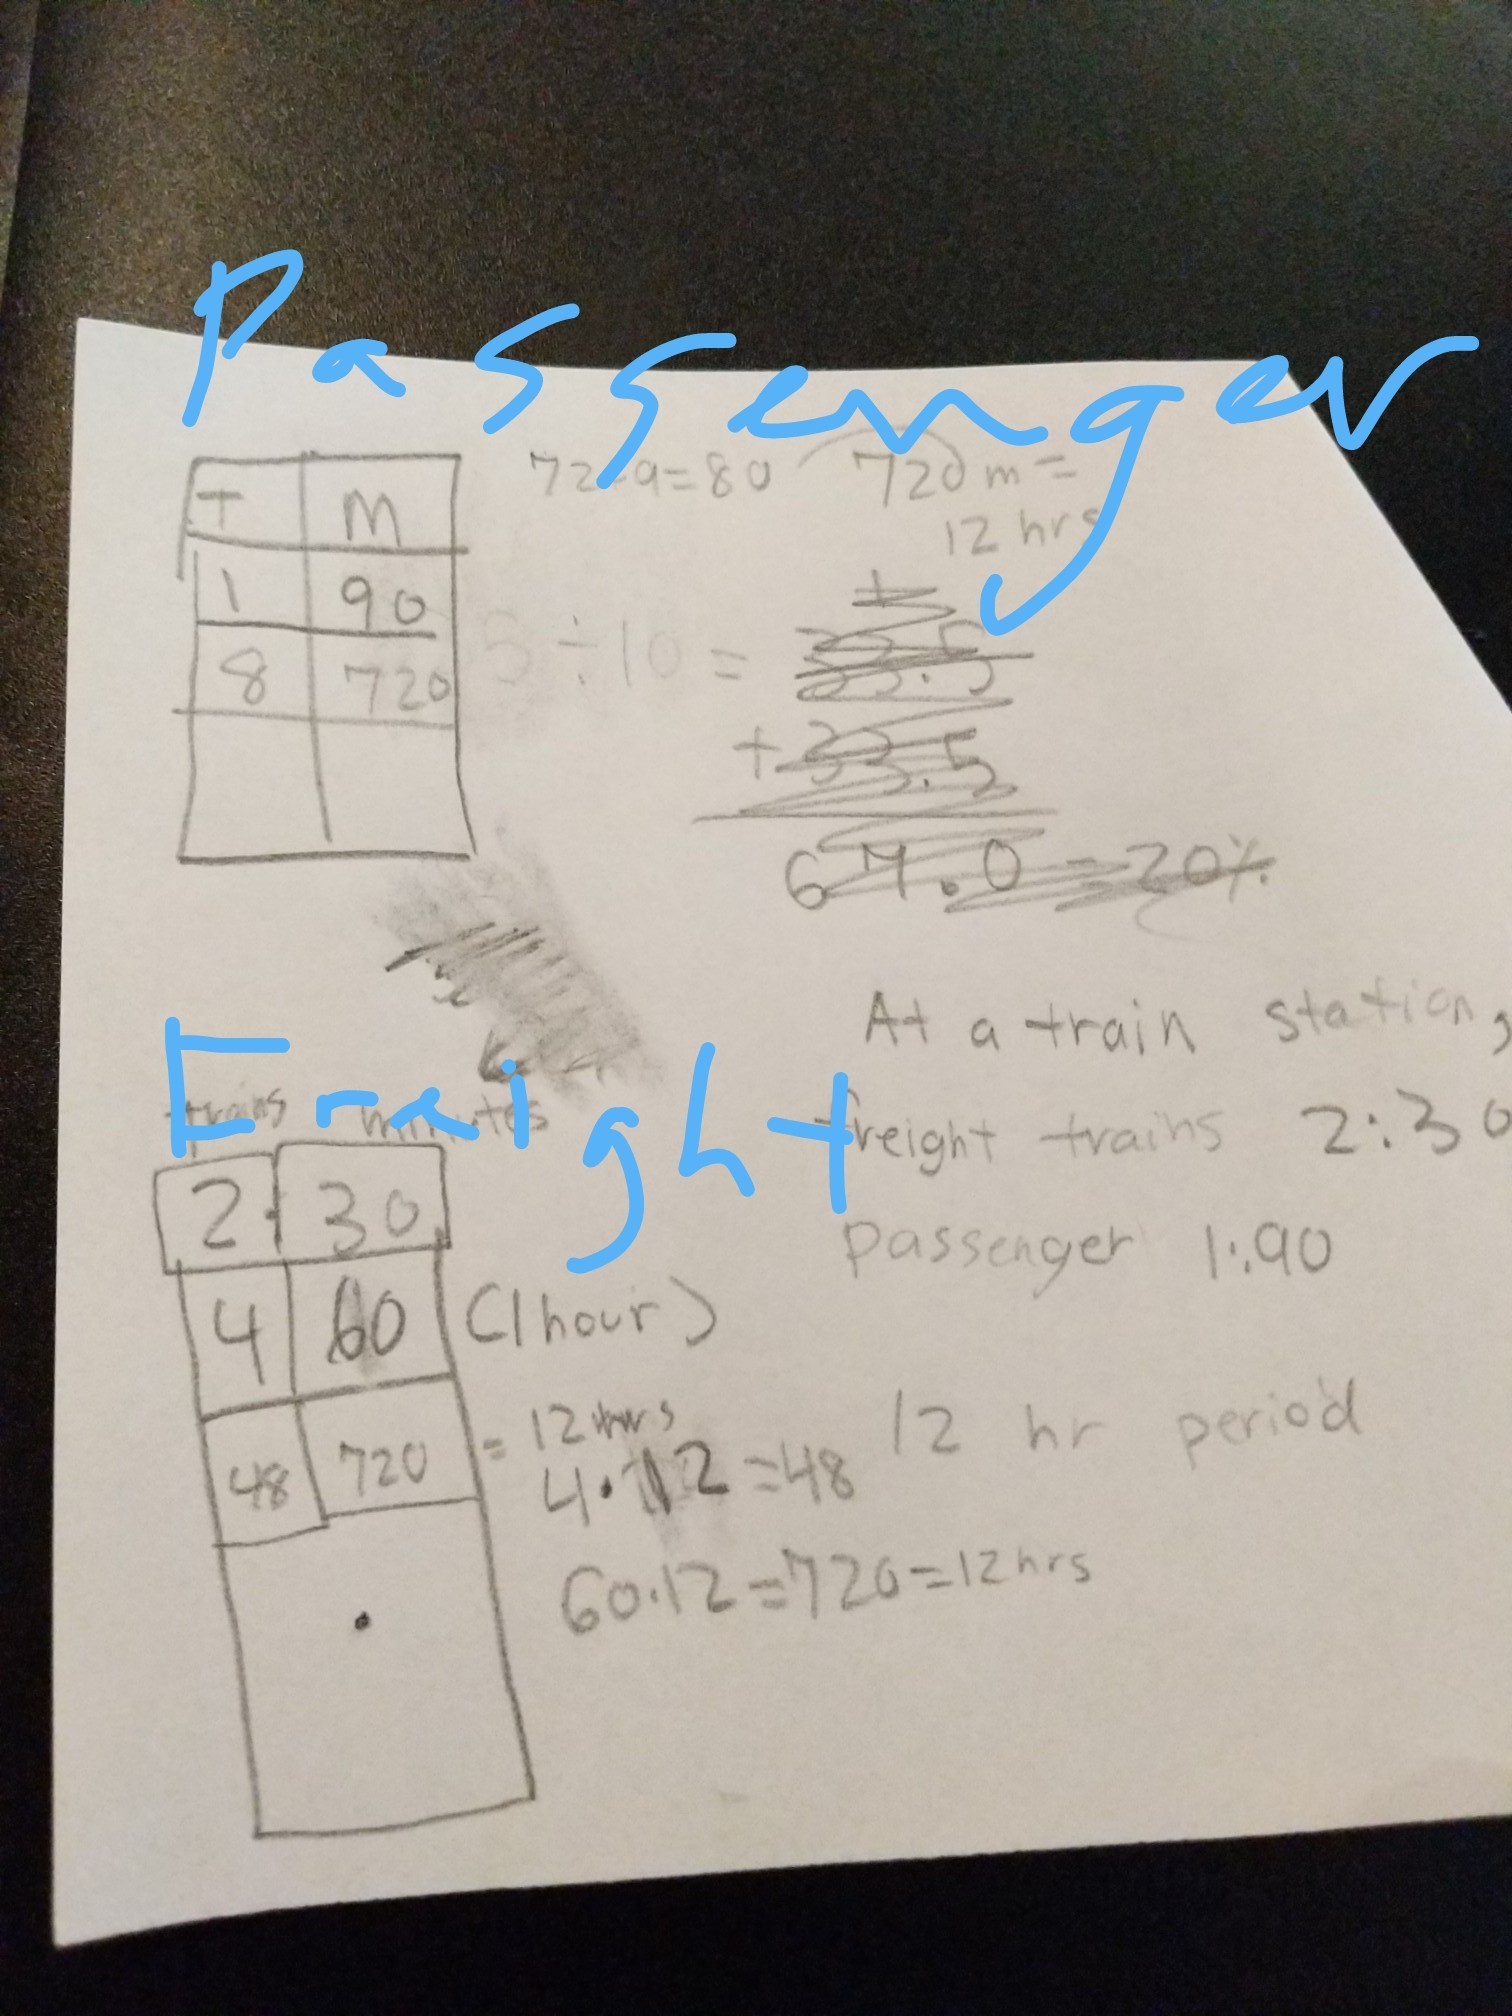 Passenger
T M
1 90
8 720
72 9=80
720 m =
12 hrs
5 ÷ 10 =
33.5
+33.5
67.0 = 20%
Freight
trains minutes
2 : 30
4 60 (1 hour)
48 720 = 12 hrs
4 · 12 = 48
60·12=720=12hrs
At a train station,
freight trains 2:30
passenger 1:90
12 hr period